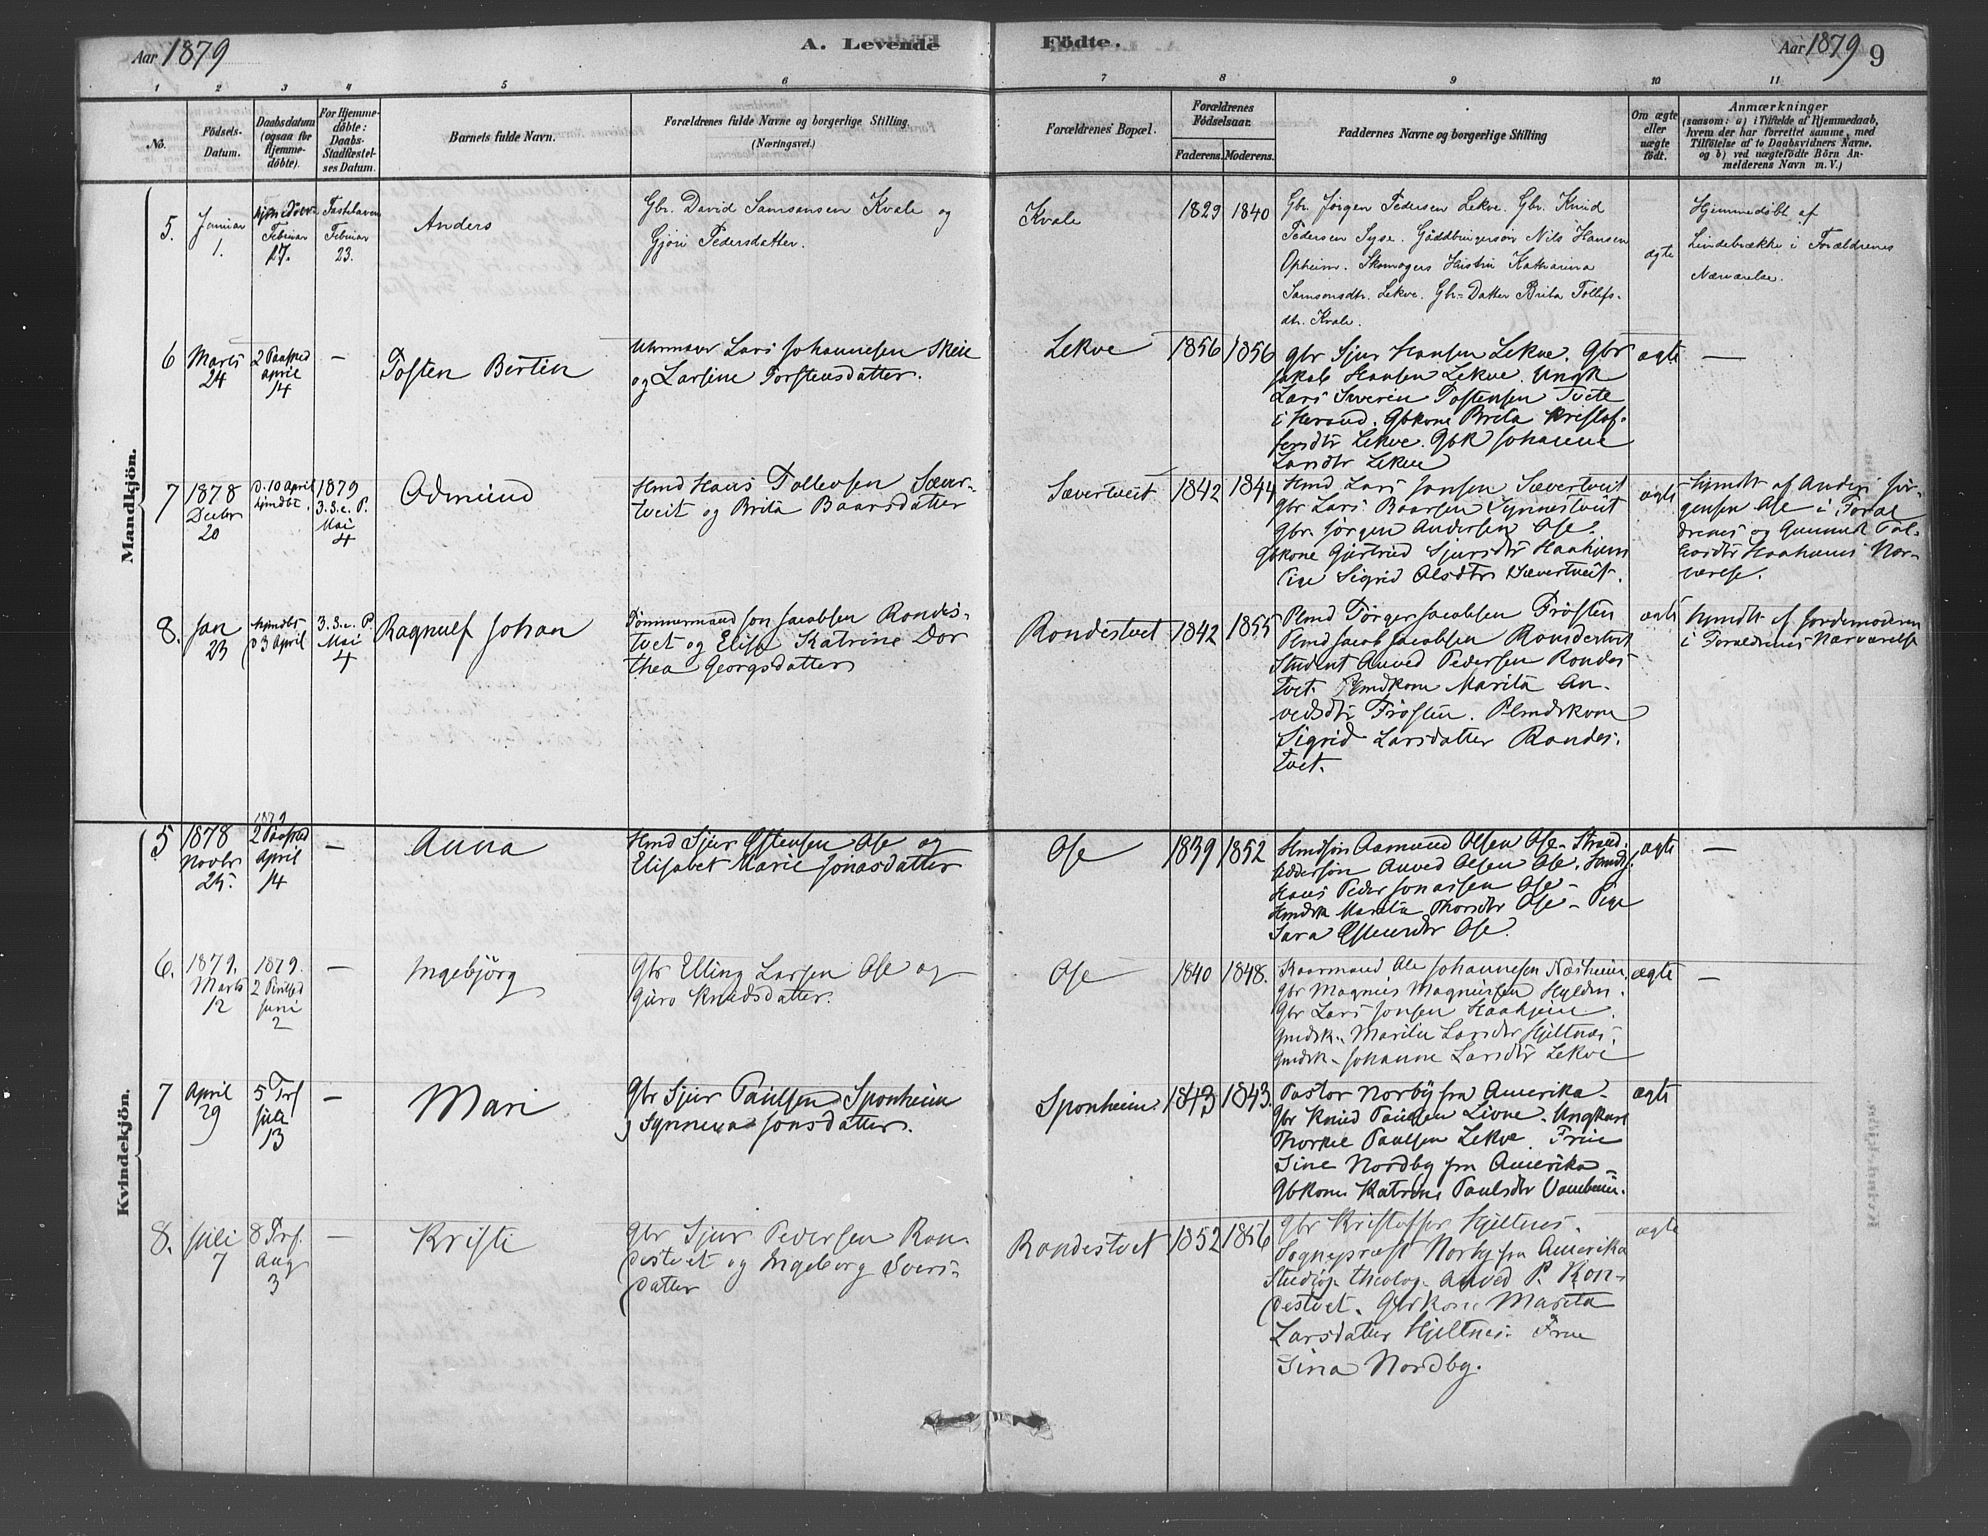 Aar 1879
A. Levende Födte.
Aar 1879
9
1 2 3 4 5 6 7 8 9 10 11
No.
Födsels-
Datum.
Daabsdatum
(ogsaa for
Hjemme-
döbte).
For Hjemme-
döbte:
Daabs-
Stadfæstel-
ses Datum.
Barnets fulde Navn.
Forældrenes fulde Navne og borgerlige Stilling
(Næringsvei.)
Forældrenes Bopæl.
Forældrenes
Födselsaar.
Faderens.
Moderens.
Faddernes Navne og borgerlige Stilling
Om ægte
eller
uægte
födt.
Anmærkninger
(saasom: a) i Tilfælde af Hjemmedaab,
hvem der har forrettet samme, med
Tilföielse af to Daabsvidners Navne.
og b) ved uægtefödte Börn An-
melderens Navn m. V.)
Mandkjön.
5.
Januar
1.
Februar
17.
Fastelavn
Februar
23.
Anders
Gbr. David Samsonsen Kvale og
Gjöri Pedersdatter.
Kvale
1829
1840
Gbr. Jörgen Pedersen Lekve. Gbr. Knud
Pedersen Syse. Nils Hansen
Opheim. Skomagers Hustru Katharina
Samsonsdtr. Lekve. Gbr-Datter Brita Tollefs-
dtr. Kvale.
ægte
Hjemmedöbt af
Lindebrække i Forældrenes
Nærværelse.
6
Marts
24
2 Paaskd
april
14
—
Tosten Bertin
Uhrmager Lars Johannesen Skeie
og Larsine Torstensdatter.
Lekve
1856
1856
Gbr Sjur Hansen Lekve. Gbr
Jakob Hansen Lekve. Ungk
Lars Severin Tostensen Tvete
i Herand. Gbkone Brita Kristof-
fersdtr Lekve. Gbk Johanne
Larsdtr Lekve
ægte
—
7
1878
Decbr
20
d. 10 April
hjmdbt.
1879
3. S. e. P.
Mai
4
Odmund
Hmd Hans Tollevsen Sæver-
tveit og Brita Baarsdatter
Sævertveit
1842
1844
Hmd Lars Jonsen Sævertveit
Gbr Lars Baarsen Lynnestveit
Gbr. Jörgen Andersen Ose.
Gbkone Gjertrud Sjursdtr Haaheim
Pige Sigrid Olsdtr Sævertveit.
ægte
Hjmdt af Anders Jör-
gensen Ose i Foræl
drenes og Gunnild Tol-
Haaheims Nær-
værelse.
8.
Jan
23
hjmdbt
d 3 April
3. S. e. P.
Mai
4
Ragnulf Johan
Tömmermand Jon Jacobsen Rondes-
tvet og Elisa Katrine Dor
thea Georgsdatter
Rondestvet
1842
1855
Plmd Törger Jacobsen Trösten
Plmd Jacob Jacobsen Rondestvet
Student Anved Pedersen Rondes-
tvet. Plmdkone Marita An-
vedsdtr Trösten. Plmdskone
Sigrid Larsdatter Rondes-
tvet.
ægte
Hjmdt af Jordemoderen
i Forældrenes Nærværelse
Kvindekjön.
5
1878
Novbr
25.
1879
2 Paaskd
April
14
—
Anna
Hmd Sjur Östensen Ose og
Elisabet Marie Jonasdatter
Ose
1839
1852
Hmdssön Aamund Olsen Ose. Strand-
siddersön Anved Olsen Ose. Hmds.
Hans Peder Jonassen Ose -
Hmdsk Marita Thorsdtr Ose - Pige
Sara Östensdtr Ose.
ægte
—
6.
1879.
Marts
12
1879.
2 Pintsed
Juni
2
—
Ingebjörg
Gbr Elling Larsen Ose og
Guro Knudsdatter.
Ose
1840
1848.
Kaarmand Ole Johannesen Næsheim.
Gbr Magnus Magnussen Hylden.
Gbr Lars Jonsen Haaheim.
Gmdsk. Marita Larsdtr Hjeltnæs.
Gmdsk. Johanne Larsdtr Lekve
ægte
—
7
April
29
5 Tref
Juli
13
—
Mari
Gbr Sjur Paulsen Sponheim
og Synneva Jonsdatter.
Sponheim.
1843
1843.
Pastor Norby fra Amerika.
Gbr Knud Paulsen Lione. Ungkarl
Thorkel Paulsen Lekve. Frue
Sine Nordby fra Amerika.
Gbkone Katrine Paulsdtr Vambeim.
ægte
8.
Juli
7
8 Tref.
Aug
3
—
Kristi
Gbr Sjur Pedersen Ron-
destvet og Ingeborg Svers-
datter
Rondestvet
1852
1856
Gbr Kristoffer Hjeltnes.
Sognepræst Norby fra Amerika
Studios. theolog. Anved P. Ron-
destvet. Gbrkone Marita
Larsdatter Hjeltnes. Frue
Sina Nordby.
ægte